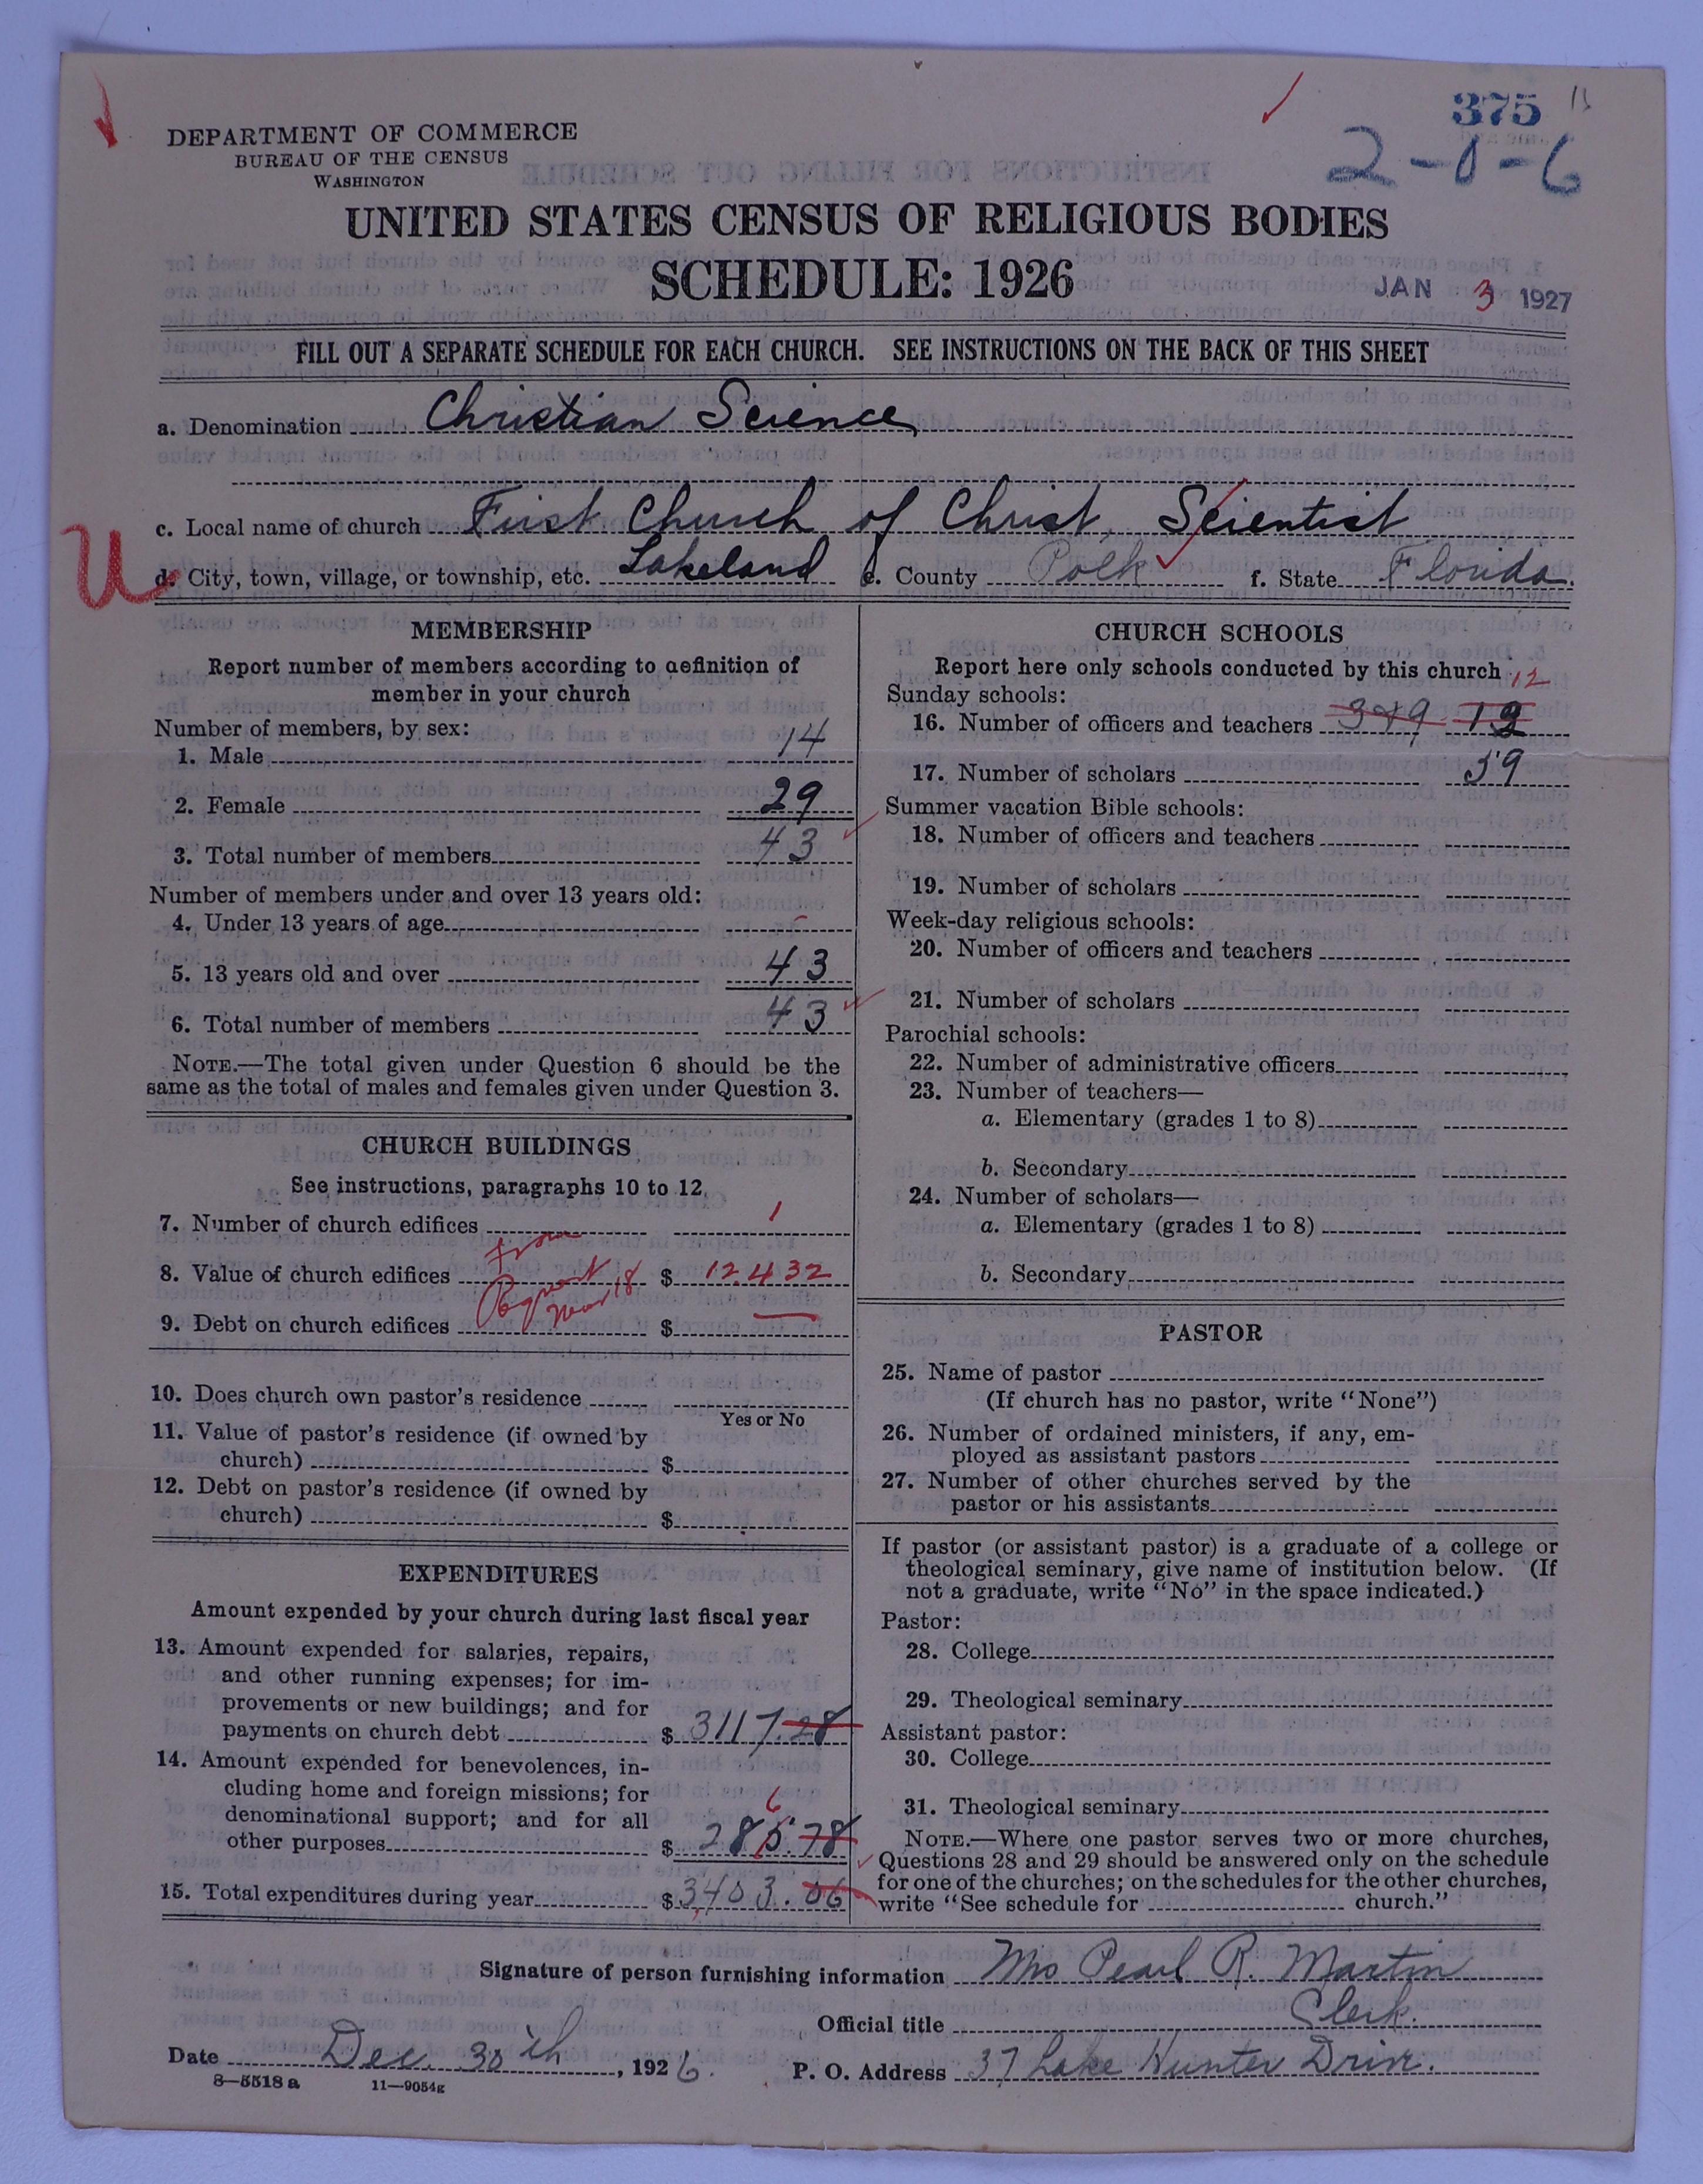 375
2-0-6
DEPARTMENT OF COMMERCE
BUREAU OF THE CENSUS
WASHINGTON
UNITED STATES CENSUS OF RELIGIOUS BODIES
SCHEDULE: 1926
JAN 3 1927
FILL OUT A SEPARATE SCHEDULE FOR EACH CHURCH. SEE INSTRUCTIONS ON THE BACK OF THIS SHEET
a. Denomination Christian Science
c. Local name of church First Church of Christ, Scientist
U
d. City, town, village, or township, etc. Lakeland e. County Polk f. State Florida.
MEMBERSHIP
Report number of members according to definition of
member in your church
Number of members, by sex:
1. Male 14
2. Female 29
3. Total number of members 43
Number of members under and over 13 years old:
4. Under 13 years of age -
5. 13 years old and over 43
6. Total number of members 43
NOTE.—The total given under Question 6 should be the
same as the total of males and females given under Question 3.
CHURCH BUILDINGS
See instructions, paragraphs 10 to 12
7. Number of church edifices 1
From
8. Value of church edifices $ 12432
18
9. Debt on church edifices $ —
10. Does church own pastor's residence
Yes or No
11. Value of pastor's residence (if owned by
church) $
12. Debt on pastor's residence (if owned by
church) $
EXPENDITURES
Amount expended by your church during last fiscal year
13. Amount expended for salaries, repairs,
and other running expenses; for im-
provements or new buildings; and for
payments on church debt $ 3117.28
14. Amount expended for benevolences, in-
cluding home and foreign missions; for
denominational support; and for all
6
other purposes $ 285.78
15. Total expenditures during year $ 3403.06
CHURCH SCHOOLS
Report here only schools conducted by this church
12
Sunday schools:
16. Number of officers and teachers 3&9 12
17. Number of scholars 59
Summer vacation Bible schools:
18. Number of officers and teachers
19. Number of scholars
Week-day religious schools:
20. Number of officers and teachers
21. Number of scholars
Parochial schools:
22. Number of administrative officers
23. Number of teachers—
a. Elementary (grades 1 to 8)
b. Secondary
24. Number of scholars—
a. Elementary (grades 1 to 8)
b. Secondary
PASTOR
25. Name of pastor
(If church has no pastor, write "None")
26. Number of ordained ministers, if any, em-
ployed as assistant pastors
27. Number of other churches served by the
pastor or his assistants
If pastor (or assistant pastor) is a graduate of a college or
theological seminary, give name of institution below. (If
not a graduate, write "No" in the space indicated.)
Pastor:
28. College
29. Theological seminary
Assistant pastor:
30. College
31. Theological seminary
NOTE.—Where one pastor serves two or more churches,
Questions 28 and 29 should be answered only on the schedule
for one of the churches; on the schedules for the other churches,
write "See schedule for church."
Signature of person furnishing information Mrs Pearl R. Martin
Official title Clerk.
Date Dec. 30th, 1926. P. O. Address 37 Lake Hunter Drive.
8—5518 a 11—9054g